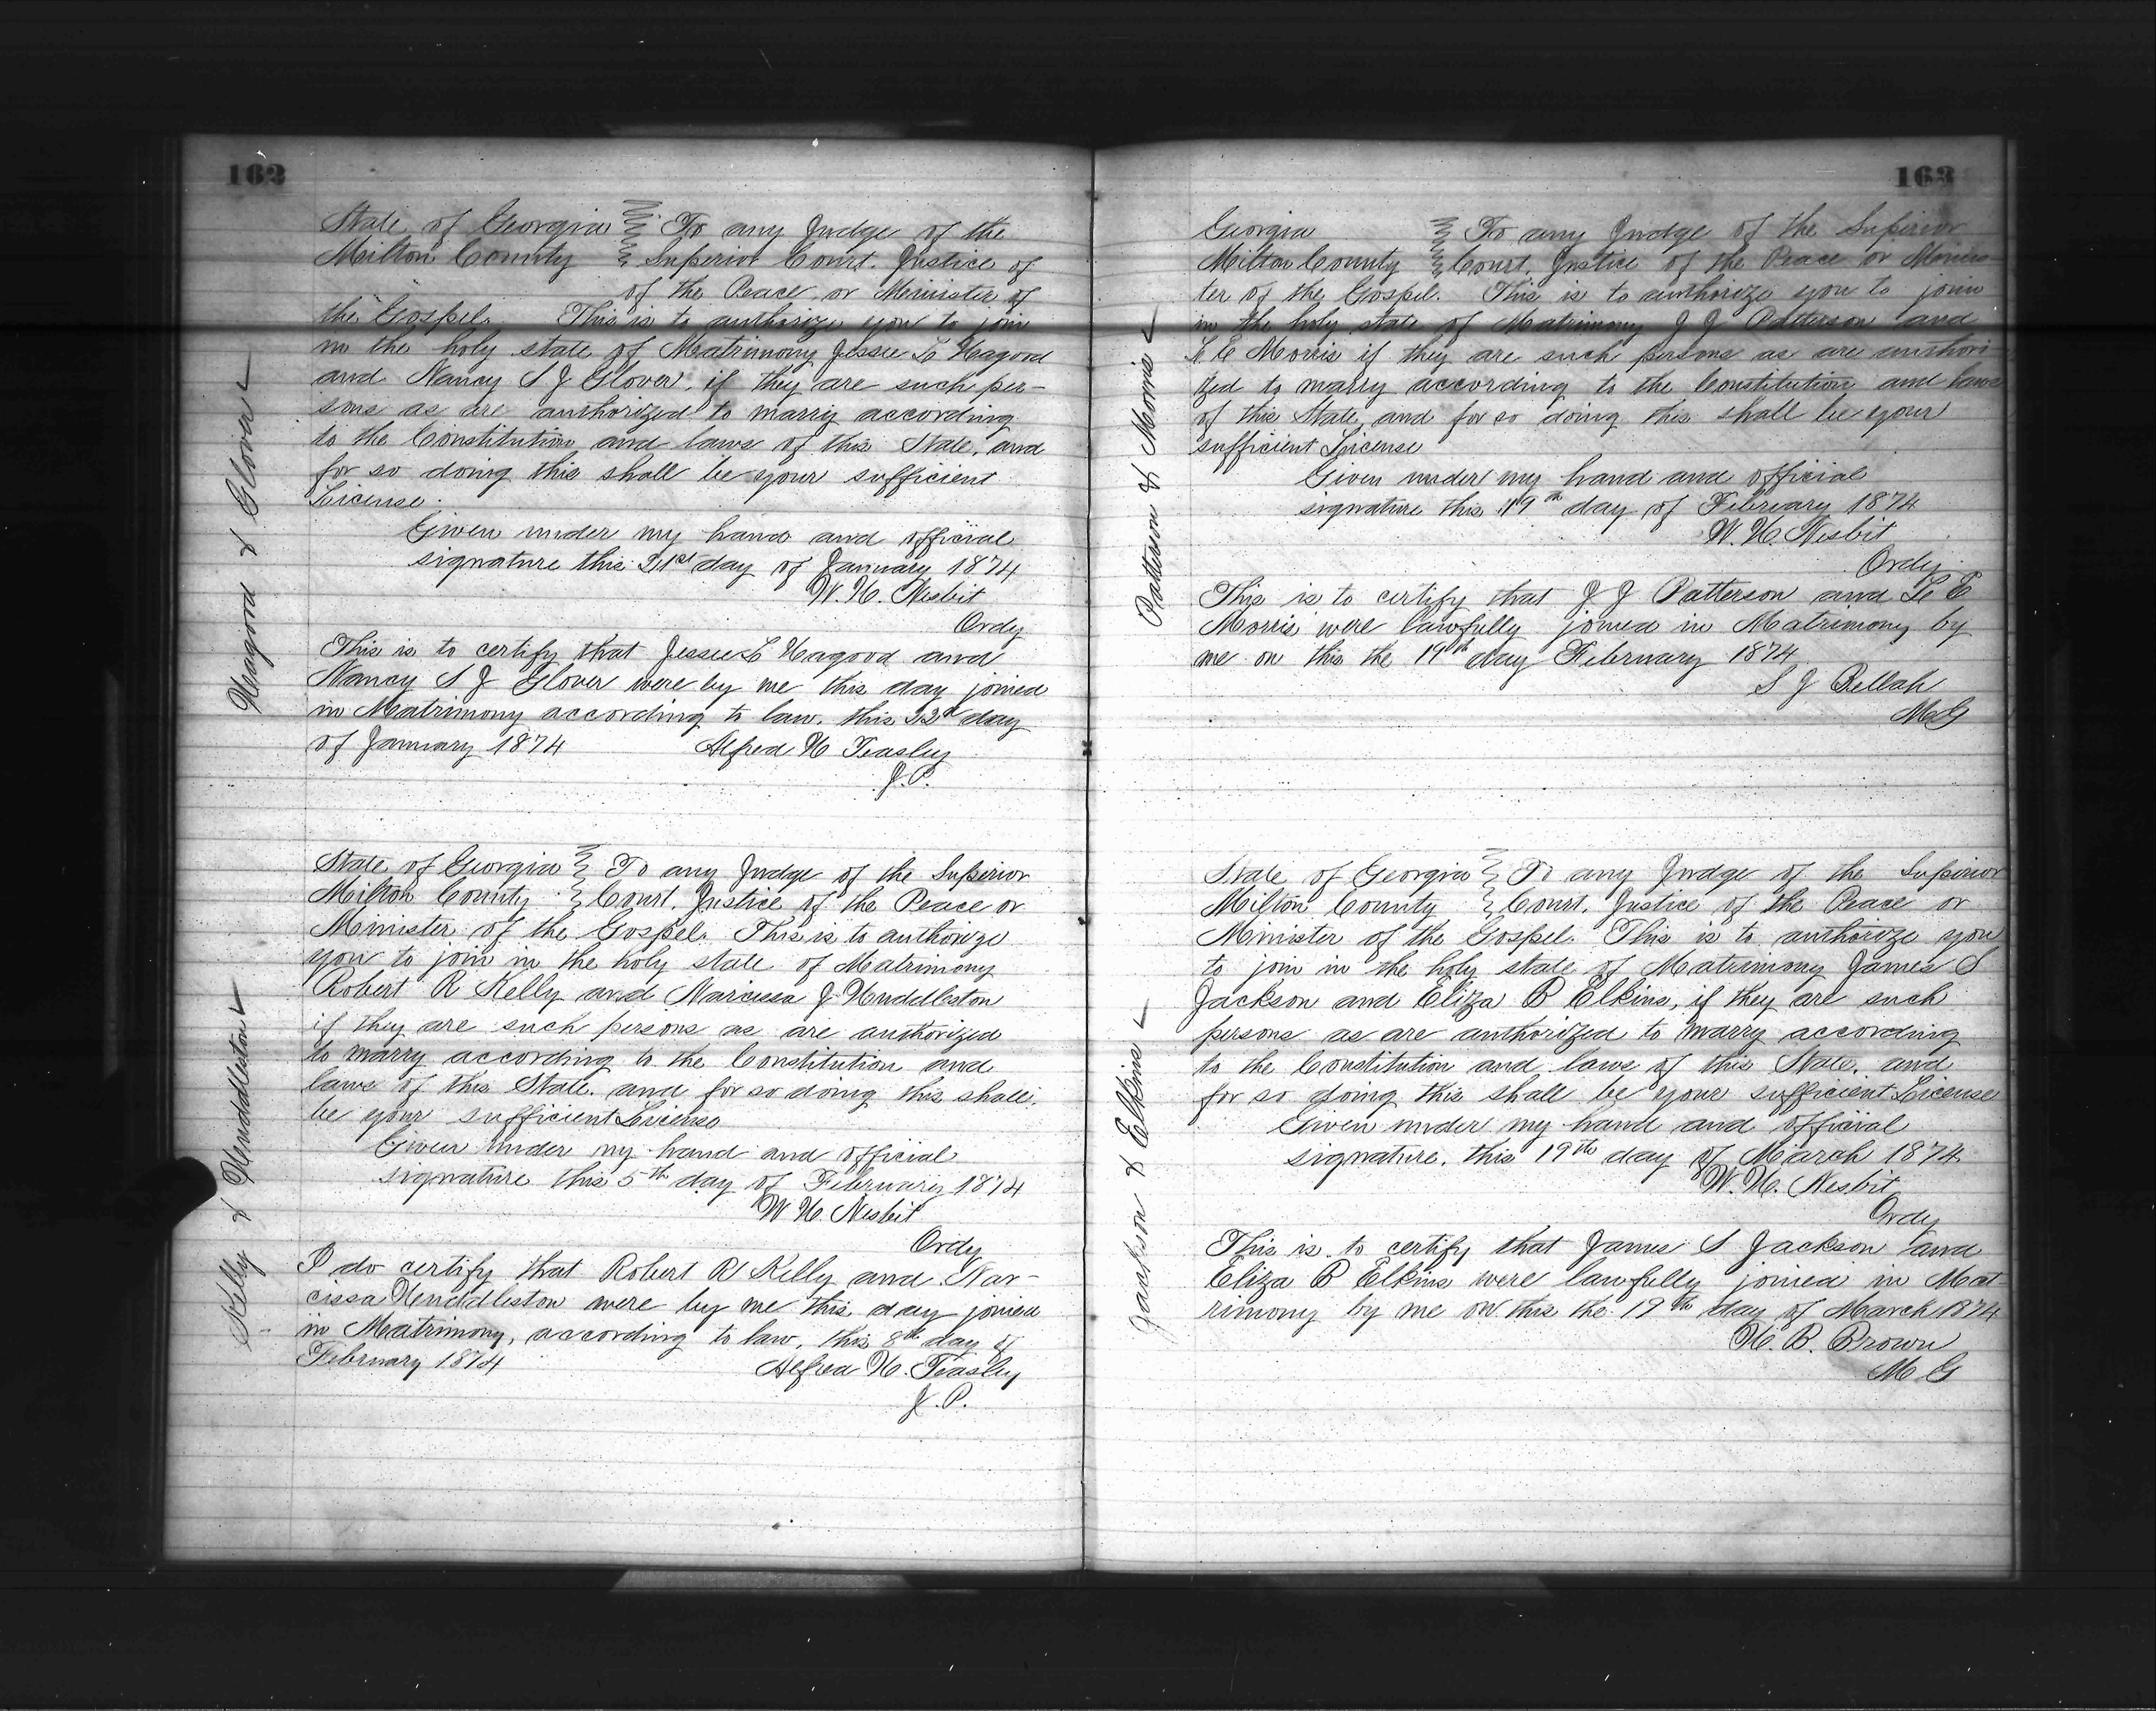 162
State of Georgia To any Judge of the
Milton County Superior Court. Justice of
of the Peace or Minister of
the Gospel. This is to authorize you to join
in the holy state of Matrimony Jessee L Hagood
and Nancy S J Glover, if they are such per-
sons as are authorized to marry according
to the Constitution and laws of this State, and
for so doing this shall be your sufficient
License.
Given under my hand and official
signature this 21st day of January 1874
W. H. Nesbit
Ordy
This is to certify that Jessee L Hagood and
Nancy S J Glover were by me this day joined
in Matrimony according to law. this 22d day
of January 1874 Alfred H Teasley
J.P.
Heagood & Glover
State of Georgia To any Judge of the Superior
Milton County Court. Justice of the Peace or
Minister of the Gospel. This is to authorize
you to join in the holy state of Matrimony
Robert R Kelly and Narcissa J Huddleston
if they are such persons as are authorized
to marry according to the Constitution and
laws of this State. and for so doing this shall
be your sufficient License
Given under my hand and official
signature this 5th day of February 1874
W H. Nesbit
Ordy
I do certify that Robert R Kelly and Nar-
cissa Henddleston were by me this day joined
in Matrimony, according to law, this 8th day of
February 1874 Alfred H. Teasley
J. P.
Kelly & Henddleston
163
Georgia To any Judge of the Superior
Milton County Court. Justice of the Peace or Minis
ter of the Gospel. This is to authorize you to join
in the holy state of Matrimony J J Patterson and
L E Morris if they are such persons as are authori
zed to marry according to the Constitution and laws
of this State, and for so doing this shall be your
sufficient License
Given under my hand and official
signature this 19th day of February 1874
W. H. Nesbit
Ordy.
This is to certify that J J Patterson and L E
Morris were lawfully joined in Matrimony by
me on this the 19th day February 1874
S J Bellah
MG
Patterson & Morris
State of Georgia To any Judge of the Superior
Milton County Court. Justice of the Peace or
Minister of the Gospel. This is to authorize you
to join in the holy state of Matrimony James S
Jackson and Eliza B Elkins, if they are such
persons as are authorized to marry according
to the Constitution and laws of this State. and
for so doing this shall be your sufficient License
Given under my hand and official
signature. this 19th day of March 1874
W. H. Nesbit
Ordy
This is to certify that James S Jackson and
Eliza B Elkins were lawfully joined in Mat-
rimony by me on this the 19th day of March 1874
H. B. Brown
M G
Jackson & Elkins